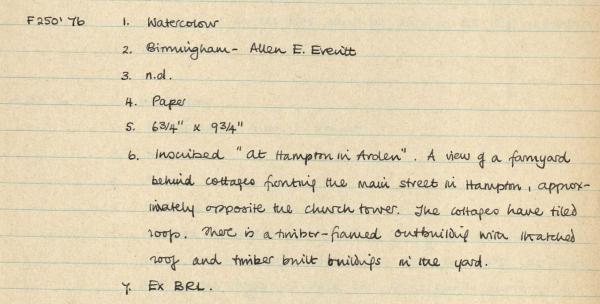 F250' 76 1. Watercolour
2. Birmingham - Allen E. Everitt
3. n.d.
4. Paper
5. 6 3/4" x 9 3/4"
6. Inscribed "at Hampton in Arden". A view of a farmyard
behind cottages fronting the main street in Hampton, approx-
imately opposite the church tower. The cottages have tiled
roofs. There is a timber-framed outbuilding with thatched
roof and timber built buildings in the yard.
7. Ex BRL.